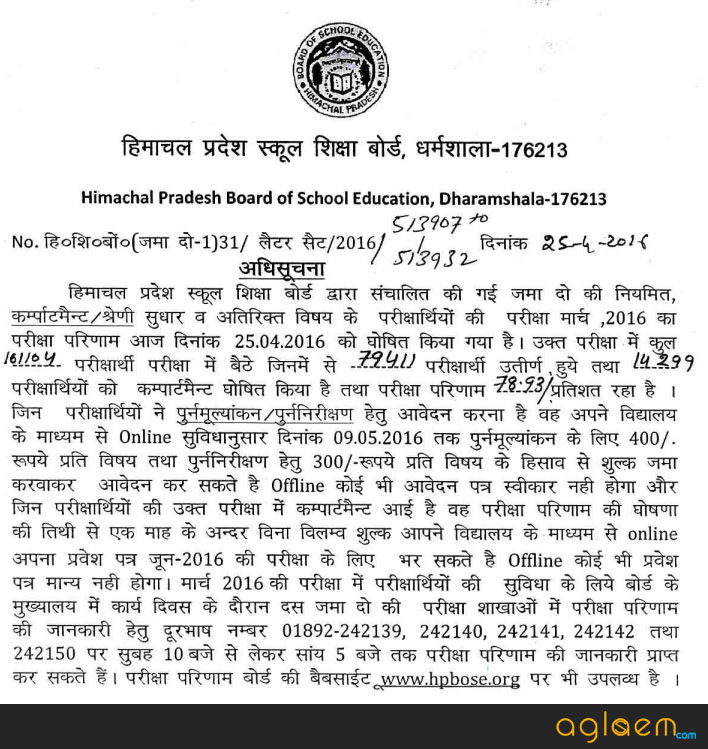 BOARD OF SCHOOL EDUCATION
HIMACHAL PRADESH
हिमाचल प्रदेश स्कूल शिक्षा बोर्ड, धर्मशाला-176213
Himachal Pradesh Board of School Education, Dharamshala-176213
513907 to
No. हि०शि०बों०(जमा दो-1)31/ लैटर सैट/2016/ 513932 दिनांक 25-4-2016
अधिसूचना
हिमाचल प्रदेश स्कूल शिक्षा बोर्ड द्वारा संचालित की गई जमा दो की नियमित,
कर्म्पाटमैन्ट/श्रेणी सुधार व अतिरिक्त विषय के परीक्षार्थियों की परीक्षा मार्च ,2016 का
परीक्षा परिणाम आज दिनांक 25.04.2016 को घोषित किया गया है। उक्त परीक्षा में कुल
101104 परीक्षार्थी परीक्षा में बैठे जिनमें से 79411 परीक्षार्थी उतीर्ण हुये तथा 14299
परीक्षार्थियों को कम्पार्टमैन्ट घोषित किया है तथा परीक्षा परिणाम 78.93/प्रतिशत रहा है ।
जिन परीक्षार्थियों ने पुर्नमूल्यांकन/पुर्ननिरीक्षण हेतु आवेदन करना है वह अपने विद्यालय
के माध्यम से Online सुविधानुसार दिनांक 09.05.2016 तक पुर्नमूल्यांकन के लिए 400/.
रूपये प्रति विषय तथा पुर्ननिरीक्षण हेतु 300/-रूपये प्रति विषय के हिसाव से शुल्क जमा
करवाकर आवेदन कर सकते है Offline कोई भी आवेदन पत्र स्वीकार नही होगा और
जिन परीक्षार्थियों की उक्त परीक्षा में कम्पार्टमैन्ट आई है वह परीक्षा परिणाम की घोषणा
की तिथी से एक माह के अन्दर विना विलम्व शुल्क आपने विद्यालय के माध्यम से online
अपना प्रवेश पत्र जून-2016 की परीक्षा के लिए भर सकते है Offline कोई भी प्रवेश
पत्र मान्य नही होगा। मार्च 2016 की परीक्षा में परीक्षार्थियों की सुविधा के लिये बोर्ड के
मुख्यालय में कार्य दिवस के दौरान दस जमा दो की परीक्षा शाखाओं में परीक्षा परिणाम
की जानकारी हेतु दूरभाष नम्बर 01892-242139, 242140, 242141, 242142 तथा
242150 पर सुबह 10 बजे से लेकर सांय 5 बजे तक परीक्षा परिणाम की जानकारी प्राप्त
कर सकते हैं। परीक्षा परिणाम बोर्ड की बैबसाईट www.hpbose.org पर भी उपलव्ध है ।
aglasem.com